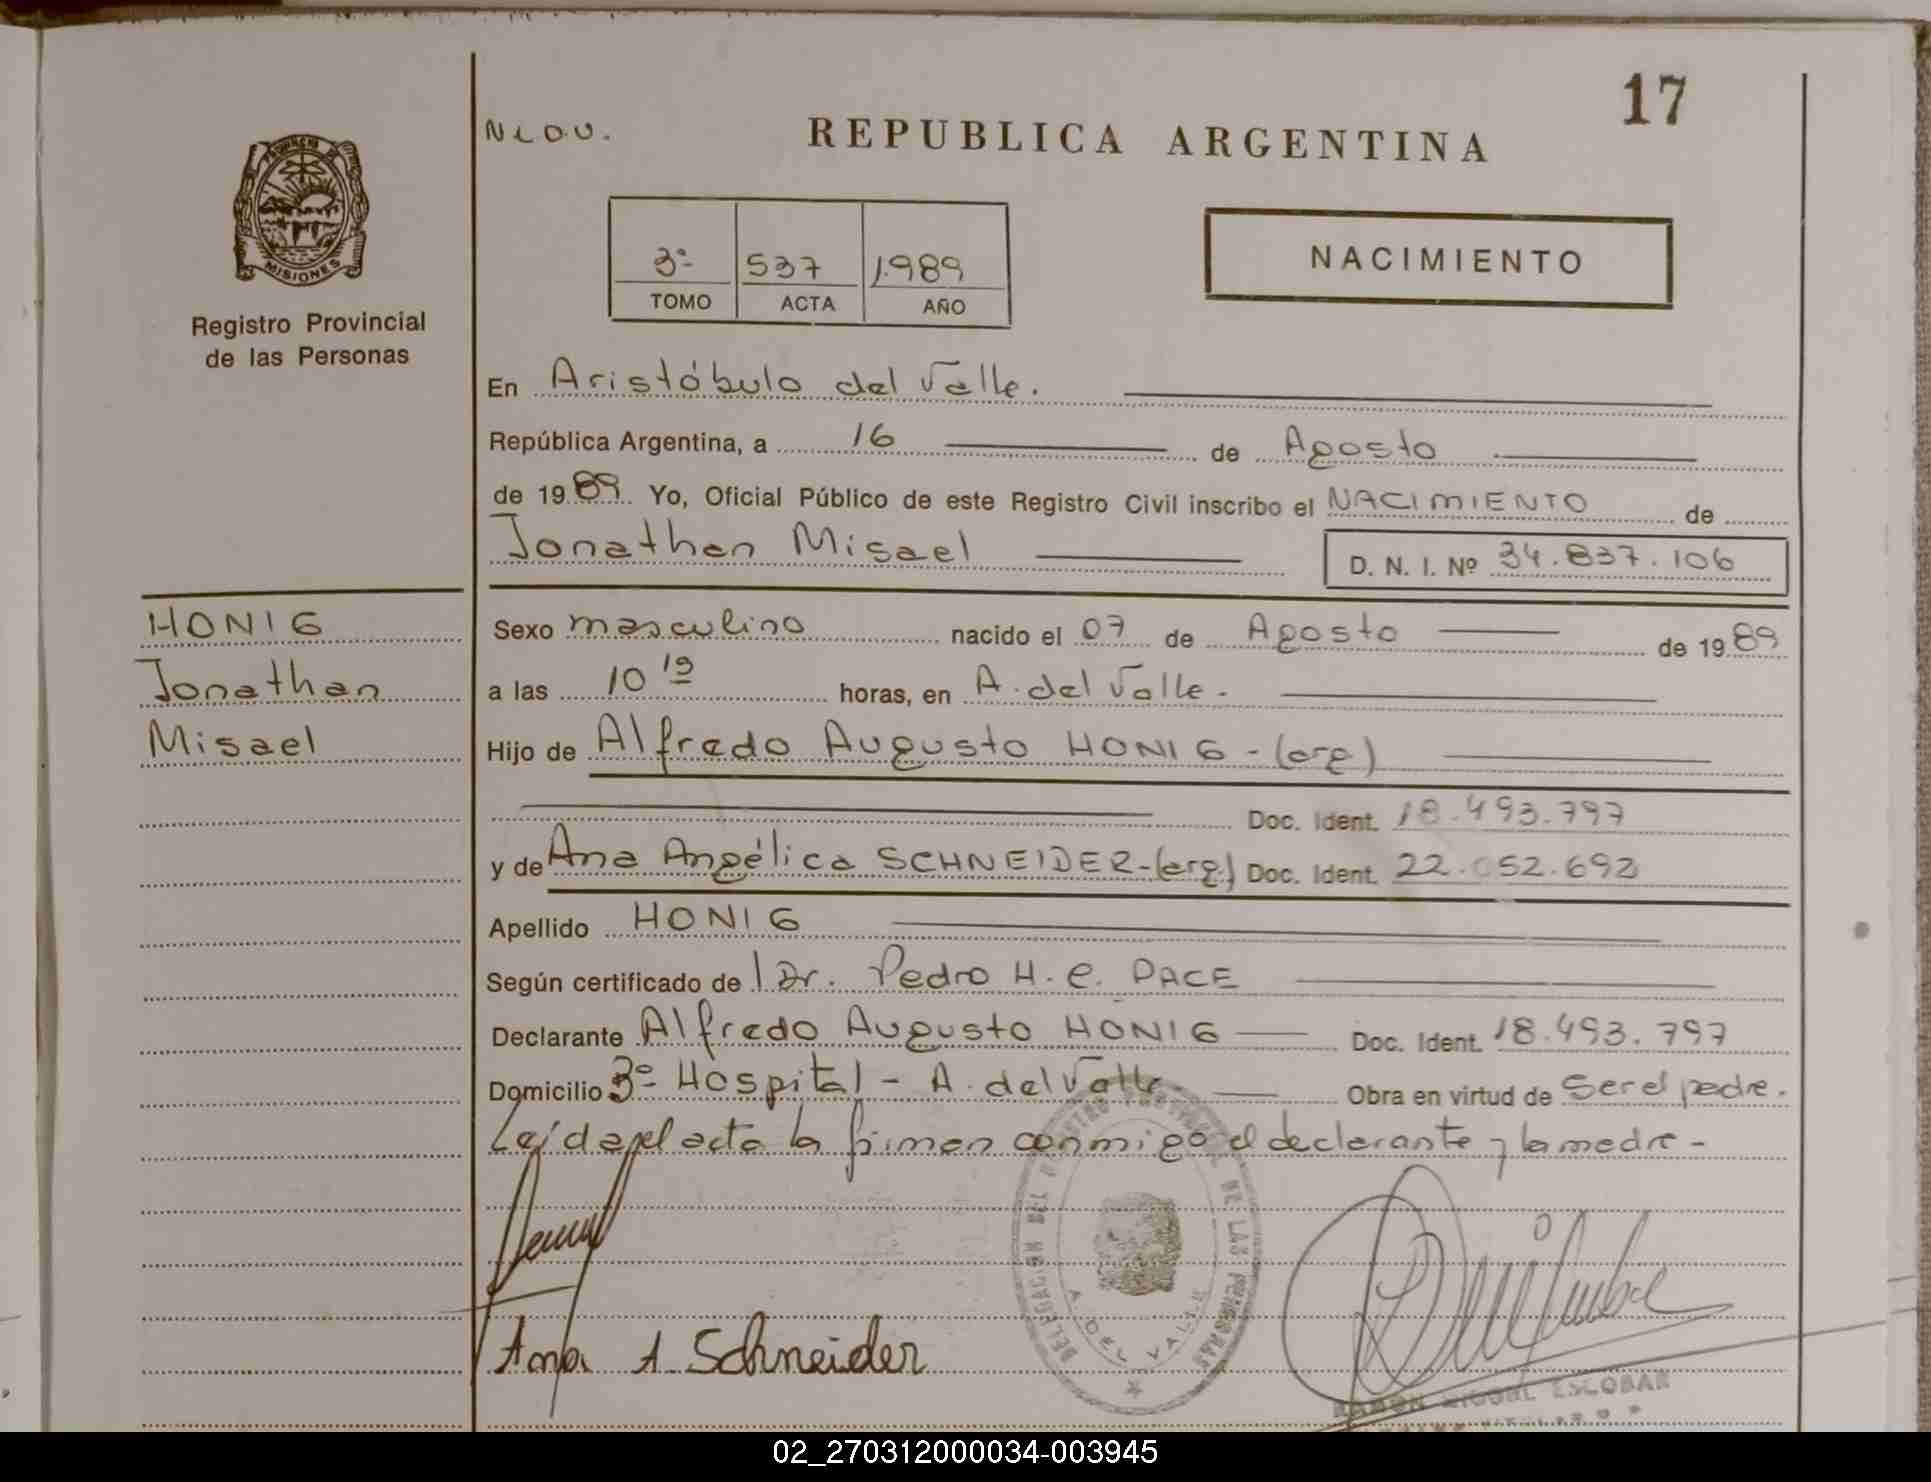 17
N L O.U.
REPUBLICA ARGENTINA
PROVINCIA DE
MISIONES
Registro Provincial
de las Personas
3º 537 1.989
TOMO ACTA AÑO
NACIMIENTO
En Aristóbulo del Valle.
República Argentina, a 16 de Agosto
de 1989 Yo, Oficial Público de este Registro Civil inscribo el NACIMIENTO de
Jonathan Misael D. N. I. Nº 34.837.106
HONIG
Jonathan
Misael
Sexo masculino nacido el 07 de Agosto de 1989
a las 10 19 horas, en A. del Valle.
Hijo de Alfredo Augusto HONIG - (arg)
Doc. Ident. 18.493.797
y de Ana Angélica SCHNEIDER - (arg) Doc. Ident. 22.052.692
Apellido HONIG
Según certificado de Dr. Pedro H. C. PACE
Declarante Alfredo Augusto HONIG Doc. Ident. 18.493.797
Domicilio 3º Hospital - A. del Valle Obra en virtud de Ser el padre.
Leída el acta la firman conmigo el declarante y la madre -
DELEGACION DEL REGISTRO PROVINCIAL DE LAS PERSONAS
A. DEL VALLE
Ana A. Schneider
RAMON MIGUEL ESCOBAR
02_270312000034-003945